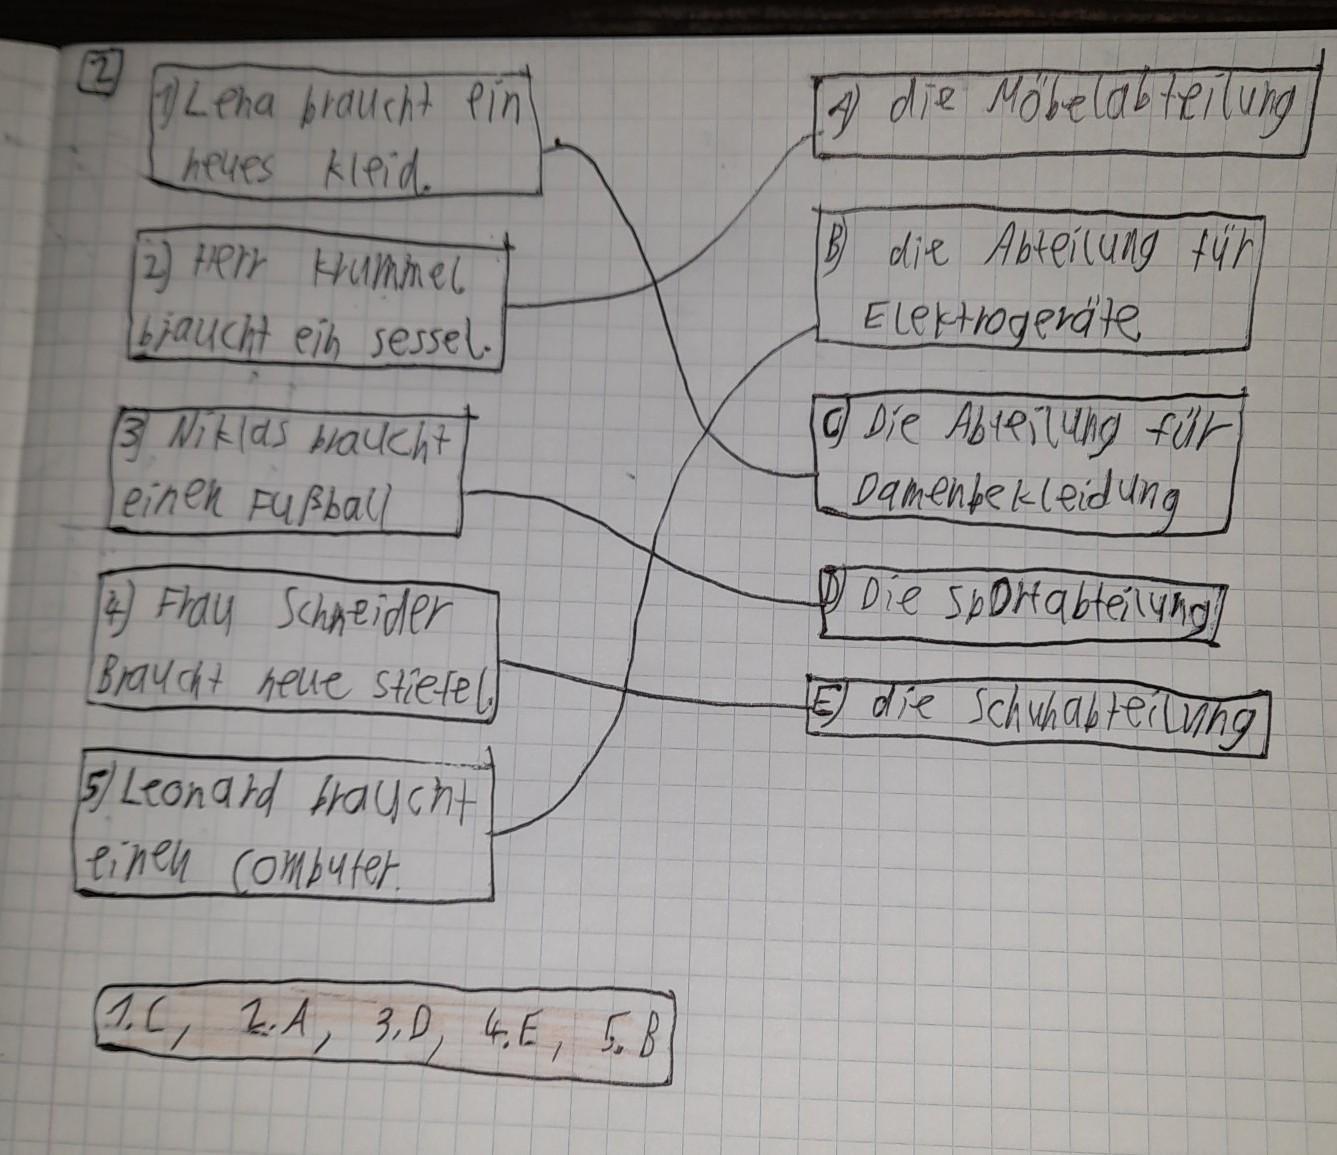 2
1) Lena braucht ein
neues Kleid.
2) Herr Krummel
braucht ein sessel.
3) Niklas braucht
einen Fußball
4) Frau Schneider
Braucht neue stiefel.
5) Leonard braucht
einen Computer.
A) die Möbelabteilung
B) die Abteilung für
Elektrogeräte
C) Die Abteilung für
Damenbekleidung
D) Die Sportabteilung
E) die Schuhabteilung
1.C, 2.A, 3.D, 4.E, 5.B